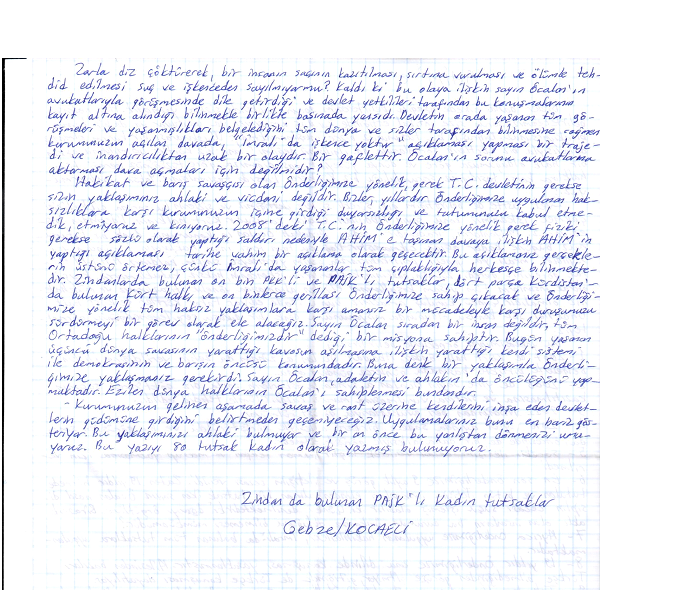 Zorla diz çöktürerek, bir insanın saçının kazıtılması, sırtına vurulması ve ölümle teh-
did edilmesi suç ve işkenceden sayılmıyormu? Kaldı ki bu olaya ilişkin sayın Öcalan'ın
avukatlarıyla görüşmesinde dile getirdiği ve devlet yetkilileri tarafından bu konuşmalarına
kayıt altına alındığı bilinmekle birlikte basınada yansıdı. Devletin orada yaşanan tüm gö-
rüşmeleri ve yaşanmışlıkları belgelediğini tüm dünya ve sizler tarafından bilinmesine rağmen
kurumunuzun açılan davada, "İmralı'da işkence yoktur" açıklaması yapması bir traje-
di ve inandırıcılıktan uzak bir olaydır. Bir gaflettir. Öcalan'ın sorunu avukatlarına
aktarması dava açmaları için değilmidir?
Hakikat ve barış savaşçısı olan Önderliğimize yönelik, gerek T.C. devletinin gerekse
sizin yaklaşımınız ahlaki ve vicdani değildir. Bizler, yıllardır Önderliğimize uygulanan hak-
sızlıklara karşı kurumunuzun içine girdiği duyarsızlığı ve tutumunuzu kabul etme-
dik, etmiyoruz ve kınıyoruz. 2008'deki T.C.'nin Önderliğimize yönelik gerek fiziki
gerekse sözlü olarak yaptığı saldırı nedeniyle AHİM'e taşınan davaya ilişkin AHİM'in
yaptığı açıklaması tarihe vahim bir açıklama olarak geçecektir. Bu açıklamanız gerçekle-
rin üstünü örtemez, çünkü İmralı'da yaşananlar tüm çıplaklığıyla herkesçe bilinmekte-
dir. Zindanlarda bulunan on bin PKK'li ve PAJK'lı tutsaklar, dört parça Kürdistan'-
da bulunan Kürt halkı ve on binlerce gerillası Önderliğimize sahip çıkacak ve Önderliği-
mize yönelik tüm haksız yaklaşımlara karşı amansız bir mücadeleyle karşı duruşumuzu
sürdürmeyi bir görev olarak ele alacağız. Sayın Öcalan sıradan bir insan değildir, tüm
Ortadoğu halklarının "önderliğimizdir" dediği bir misyona sahiptir. Bugün yaşanan
üçüncü dünya savaşının yarattığı kavosun aşılmasına ilişkin yarattığı kendi sistemi
ile demokrasinin ve barışın öncüsü konumundadır. Buna denk bir yaklaşımla Önderli-
ğimize yaklaşmanız gerekirdi. Sayın Öcalan, adaletin ve ahlakın'da öncülüğünü yap-
maktadır. Ezilen dünya halklarının Öcalan'ı sahiplenmesi bundandır.
Kurumunuzun gelinen aşamada savaş ve rant üzerine kendilerini inşa eden devlet-
lerin güdümüne girdiğini belirtmeden geçemiyeceğiz. Uygulamalarınız bunu en bariz gös-
teriyor. Bu yaklaşımınızı ahlaki bulmuyor ve bir an önce bu yanlıştan dönmenizi umu-
yoruz. Bu yazıyı 80 tutsak kadın olarak yazmış bulunuyoruz.
Zindan da bulunan PAJK'lı Kadın tutsaklar
Gebze/KOCAELİ